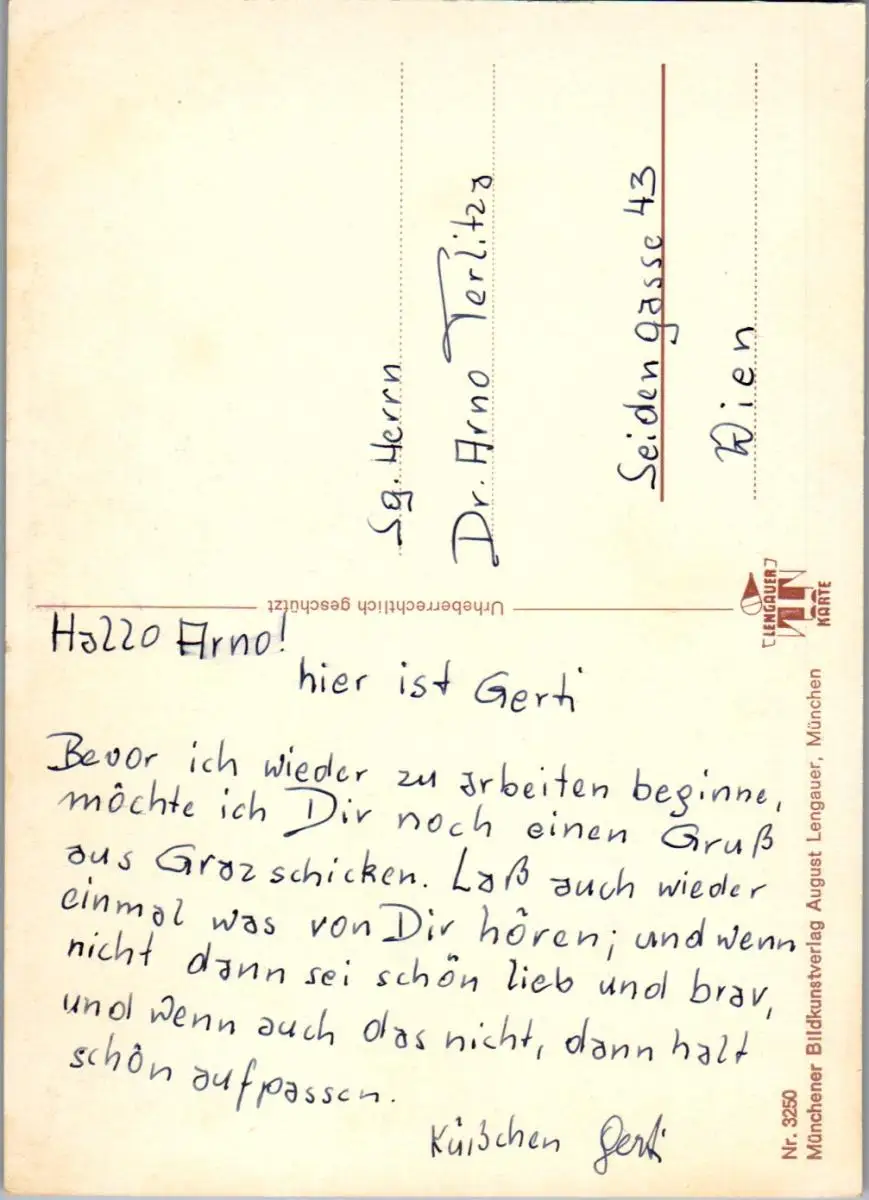 Hallo Arno!
hier ist Gerti
Bevor ich wieder zu arbeiten beginne,
möchte ich Dir noch einen Gruß
aus Graz schicken. Laß auch wieder
einmal was von Dir hören; und wenn
nicht dann sei schön lieb und brav,
und wenn auch das nicht, dann halt
schön aufpassen.
Küßchen Gerti
Sg. Herrn
Dr. Arno Terlitza
Seidengasse 43
Wien
Urheberrechtlich geschützt
LENGAUER
KARTE
Nr. 3250
Münchener Bildkunstverlag August Lengauer, München